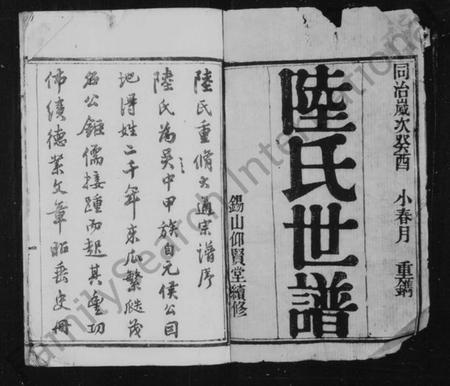 同治歲次癸酉 小春月 重鐫
陸氏世譜
錫山仰賢堂續修
陸氏重脩大通宗譜序
陸氏為吳中甲族自元侯公因
地得姓二千年來瓜繁瓞茂
名公鉅儒接踵而起其豐功
偉績德業文章昭垂史冊
FamilySearch International